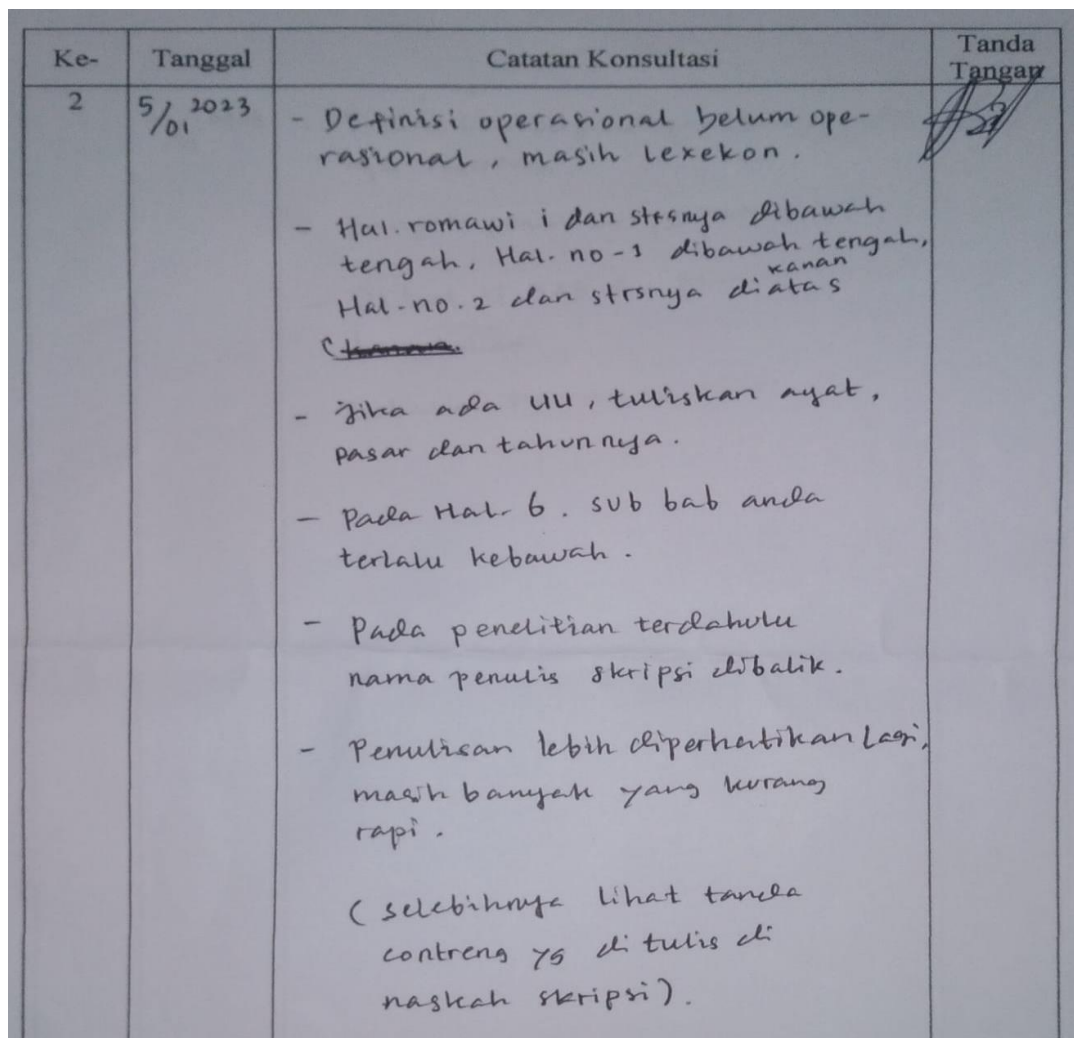 Ke- Tanggal Catatan Konsultasi Tanda Tangan
2 5/01 2023
- Definisi operasional belum ope-
rasional, masih lexekon.
- Hal. romawi i dan strsnya dibawah
tengah, Hal. no-1 dibawah tengah,
kanan
Hal-no.2 dan strsnya diatas
(
- Jika ada UU, tuliskan ayat,
pasar dan tahunnya.
- Pada Hal. 6. sub bab anda
terlalu kebawah.
- Pada penelitian terdahulu
nama penulis skripsi dibalik.
- Penulisan lebih diperhatikan Lagi,
masih banyak yang kurang
rapi.
(selebihnya lihat tanda
contreng yg di tulis di
naskah skripsi).